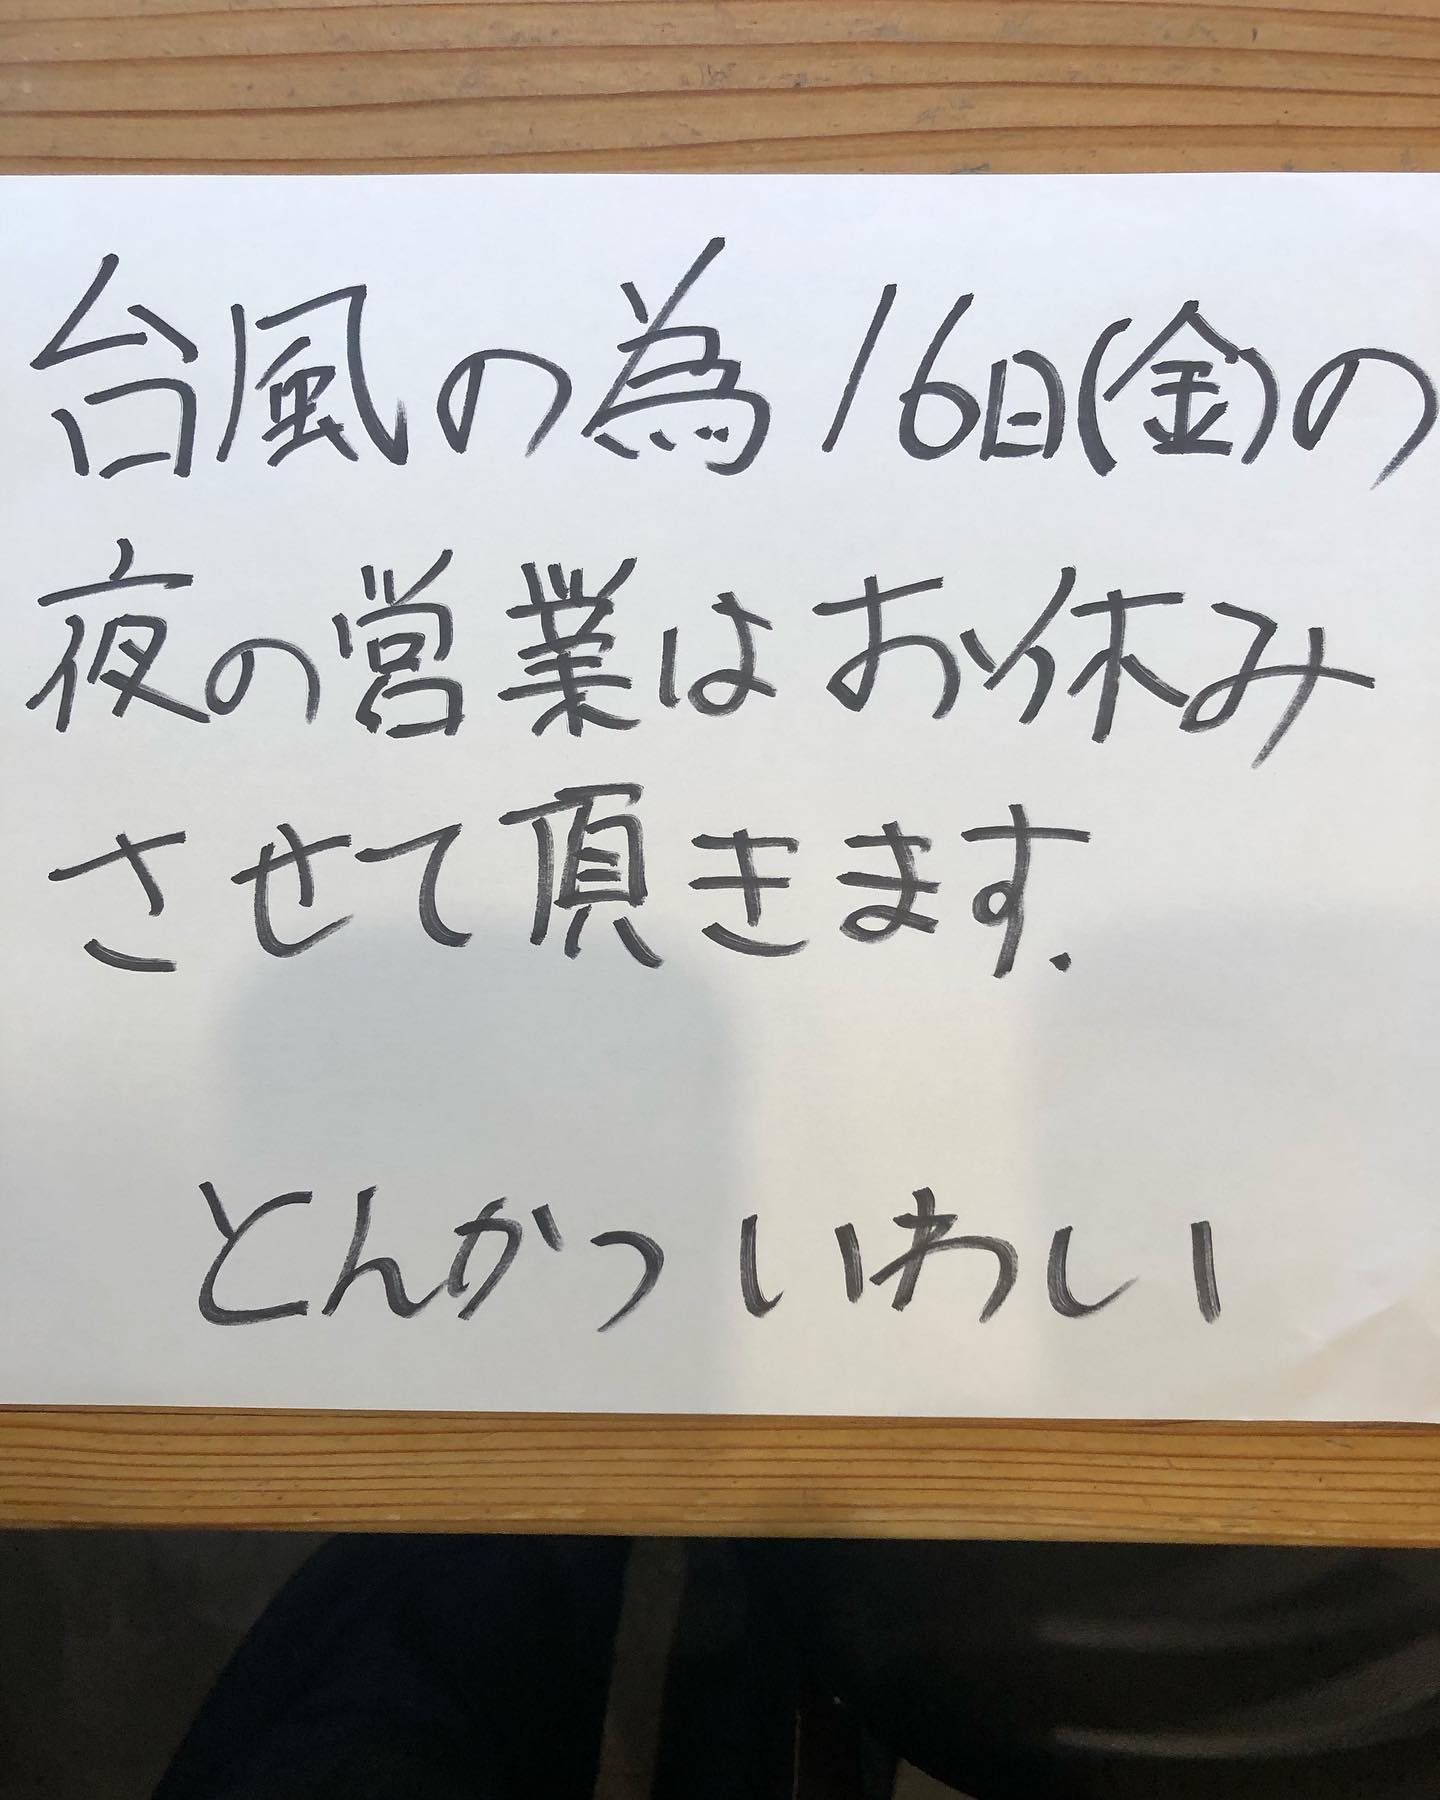 台風の為16日(金)の
夜の営業はお休み
させて頂きます.
とんかついわしい